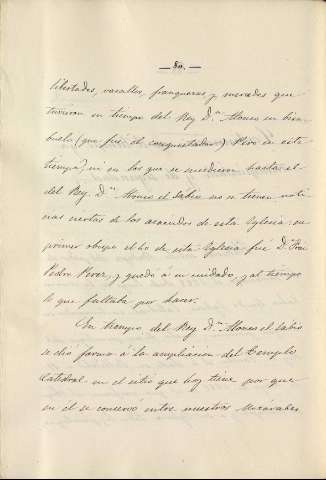 — 80. —
libertades, vasallos, franquezas y mercedes que
tuvieron en tiempo del Rey D.n Alonso su bis-
abuelo (que fué el conquistador) Pero en este
tiempo, ni en los que se sucedieron hasta el
del Rey D.n Alonso el Sabio no se tienen noti-
cias ciertas de los sucesos de esta Iglesia: su
primer obispo electo de esta Iglesia fué D.n Fray
Pedro Perez, y quedó á su cuidado, y al tiempo
lo que faltaba por hacer.
En tiempo del Rey D.n Alonso el Sabio
se dió forma á la ampliacion del Templo
Catedral en el sitio que hoy tiene por que
en el se conservó entre nuestros Mozárabes